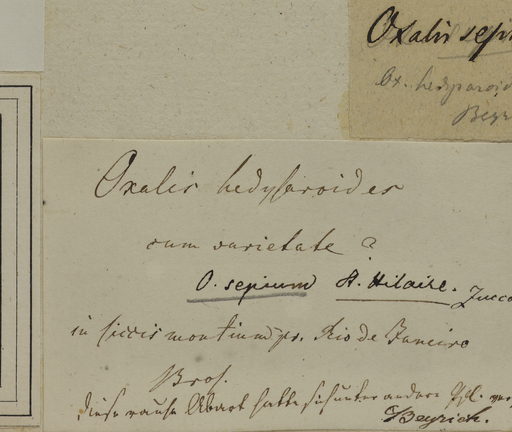 Oxalis sepi
Ox. hedysaroid
Beyr
Oxalis hedysaroides
cum varietate a
O. sepium St. Hilaire. Zucc
in siccis montium pr. Rio de Janeiro
Bras.
diese rauhe Abart hatte sich unter andere
Beyrich.